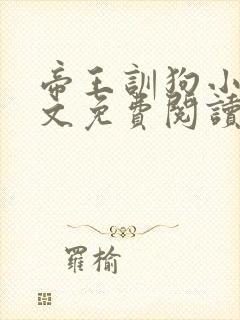 帝王訓狗小
文免費閱讀
羅榆